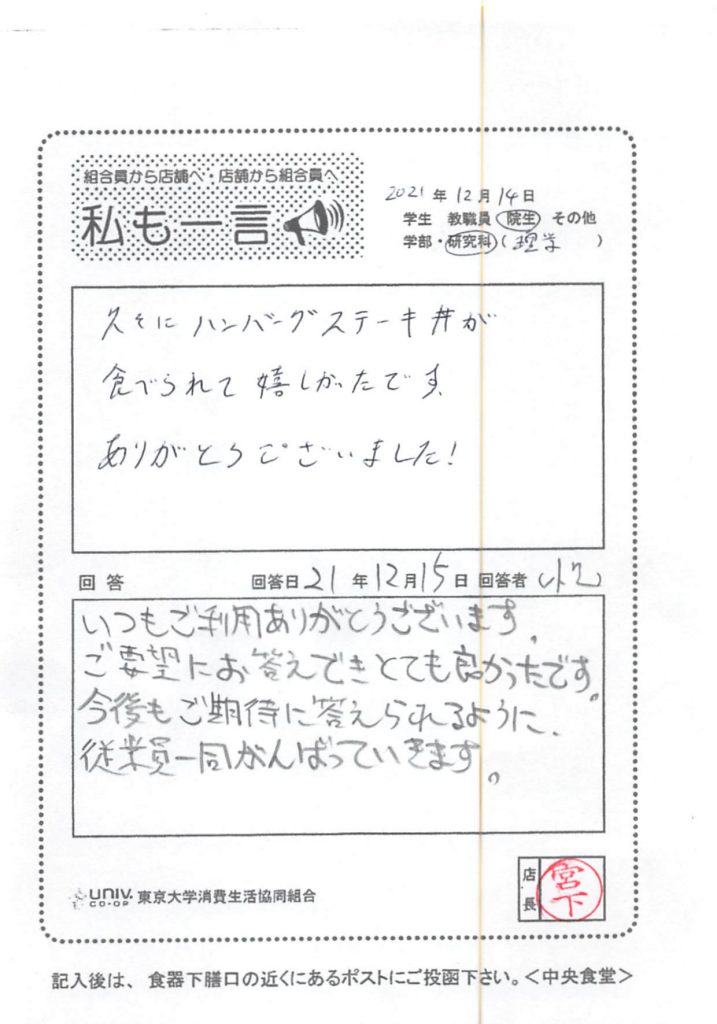 組合員から店舗へ・店舗から組合員へ
私も一言
2021年12月14日
学生 教職員 院生 その他
学部・研究科(理学)
久々に ハンバーグステーキ丼が
食べられて 嬉しかったです。
ありがとうございました!
回答 回答日 21年12月15日 回答者
いつもご利用ありがとうございます。
ご要望にお答えできとても良かったです。
今後もご期待に答えられるように、
従業員一同がんばっていきます。
UNIV. CO-OP 東京大学消費生活協同組合
店長 宮下
記入後は、食器下膳口の近くにあるポストにご投函下さい。<中央食堂>